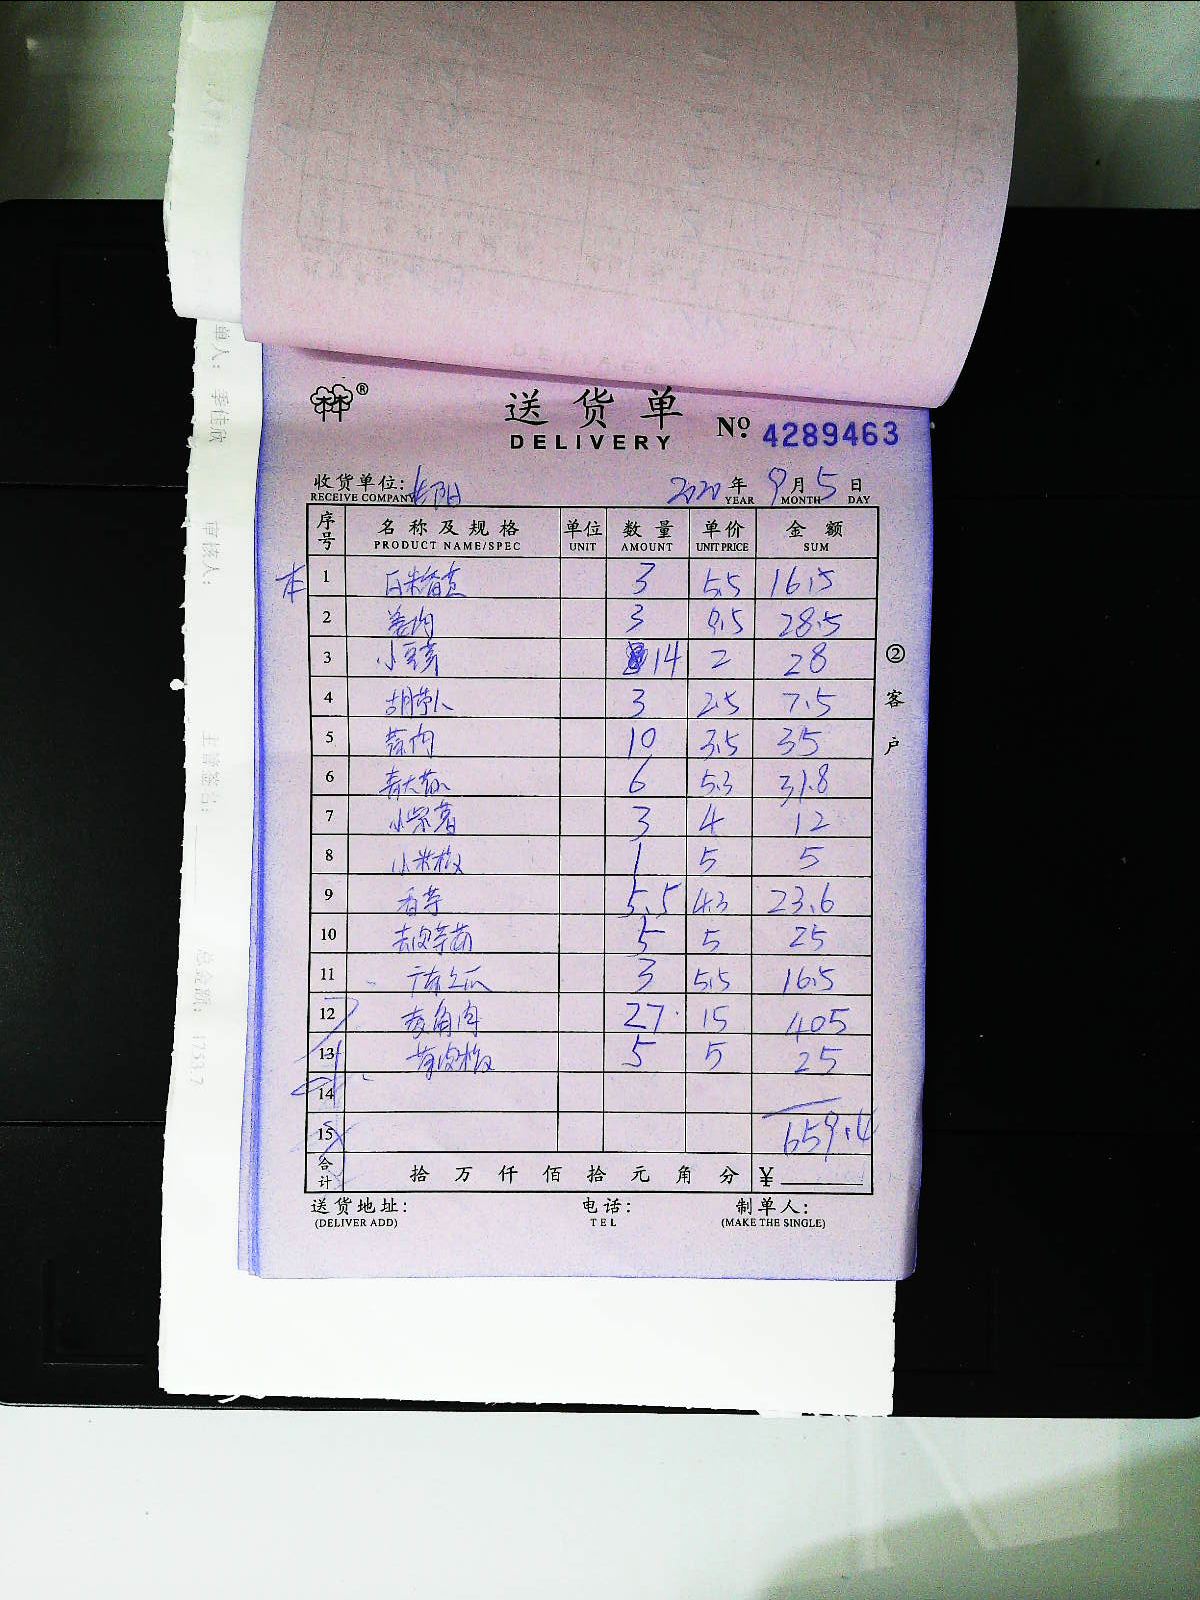 单人： 季佳欣
审核人：
主管签名：
总金额： 1733.7
®
送货单
DELIVERY
No. 4289463
收货单位: 2020 年 9 月 5 日
RECEIVE COMPANY YEAR MONTH DAY
序号 名称及规格 单位 数量 单价 金额
PRODUCT NAME/SPEC UNIT AMOUNT UNIT PRICE SUM
1 白米 3 5.5 16.5
2 姜肉 3 9.5 28.5
3 小豆芽 14 2 28
4 胡萝卜 3 2.5 7.5
5 蒜肉 10 3.5 35
6 青大蒜 6 5.3 31.8
7 小紫薯 3 4 12
8 小米椒 1 5 5
9 香芋 5.5 4.3 23.6
10 去皮 5 5 25
11 3 5.5 16.5
12 菱角肉 27 15 405
13 青皮椒 5 5 25
14
15 659.4
合计 拾 万 仟 佰 拾 元 角 分 ¥
送货地址: 电话: 制单人:
(DELIVER ADD) TEL (MAKE THE SINGLE)
②客户